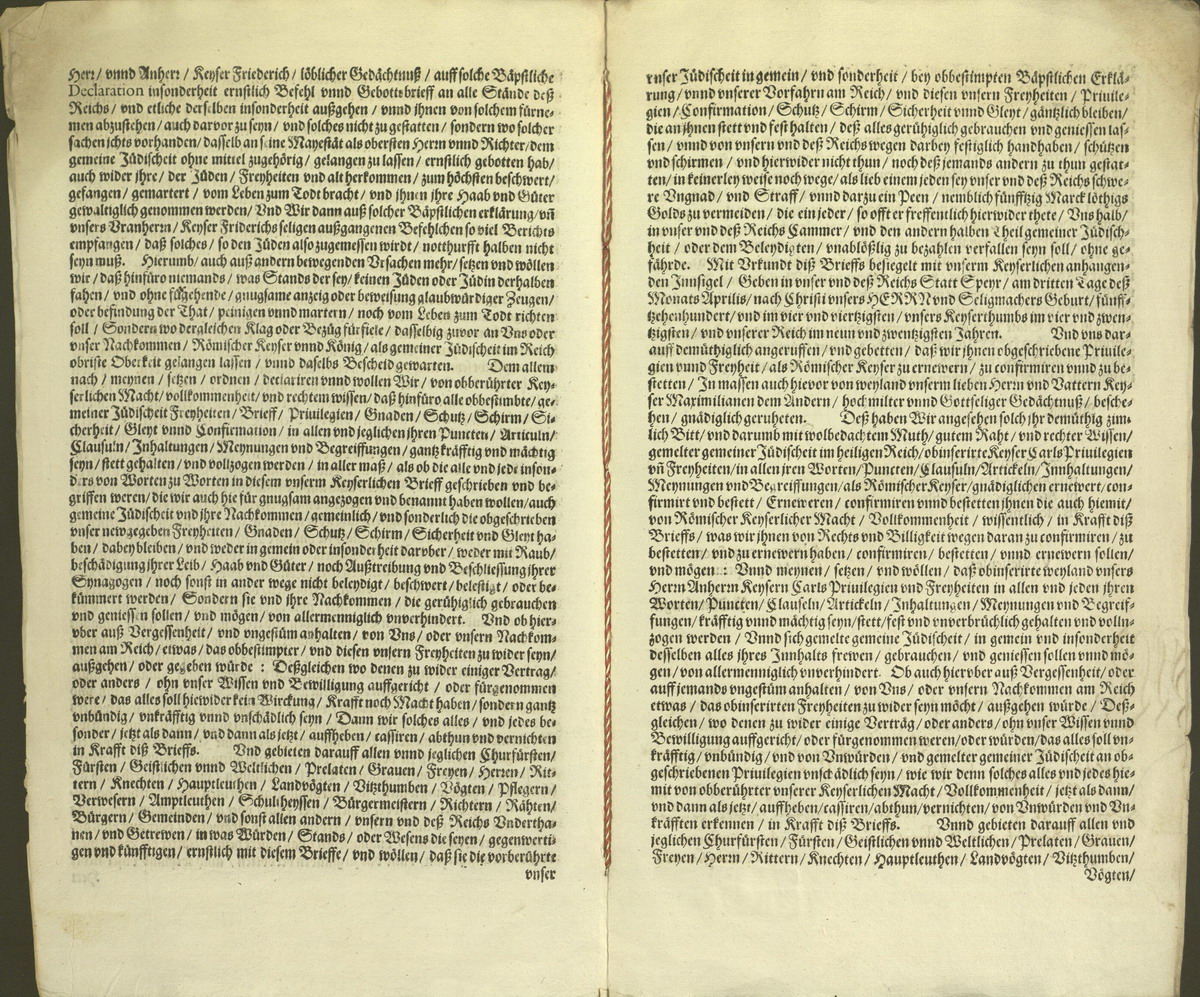 Herr / vnnd Anherr / Keyser Friederich / löblicher Gedächtnuß / auff solche Bäpstliche
Declaration insonderheit ernstlich Befehl vnnd Gebottsbrieff an alle Stände deß
Reichs / vnd etliche derselben insonderheit außgehen / vnnd ihnen von solchem fürne⸗
men abzustehen / auch darvor zu seyn / vnd solches nicht zu gestatten / sondern wo solcher
sachen jchts vorhanden / dasselb an seine Mayestät als obersten Herrn vnnd Richter / dem
gemeine Jüdischeit ohne mittel zugehörig / gelangen zu lassen / ernstlich gebotten hab /
auch wider jhre / der Jüden / Freyheiten vnd alt herkommen / zum höchsten beschwert /
gefangen / gemartert / vom Leben zum Todt bracht / vnd jhnen jhre Haab vnd Güter
gewaltiglich genommen werden / Vnd Wir dann auß solcher Bäpstlichen erklärung / vñ
vnsers Vranherrn / Keyser Friderichs seligen außgangenen Befehlchen so viel Berichts
empfangen / daß solches / so den Jüden also zugemessen wirdt / notthurfft halben nicht
seyn muß. Hierumb / auch auß andern bewegenden Vrsachen mehr / setzen vnd wöllen
wir / daß hinfüro niemands / was Stands der sey / keinen Jüden oder Jüdin derhalben
fahen / vnd ohne fürgehende / gnugsame anzeig oder beweisung glaubwürdiger Zeugen /
oder befindung der That / peinigen vnnd martern / noch vom Leben zum Todt richten
soll / Sondern wo dergleichen Klag oder Bezüg fürfiele / dasselbig zuvor an Vns oder
vnser Nachkommen / Römischer Keyser vnnd König / als gemeiner Jüdischeit im Reich
obriste Oberkeit gelangen lassen / vnnd daselbs Bescheid gewarten. Dem allem
nach / meynen / setzen / ordnen / declariren vnnd wollen Wir / von obberührter Key⸗
serlichen Macht / vollkommenheit / vnd rechtem wissen / daß hinfüro alle obbestimbte / ge⸗
meiner Jüdischeit Freyheiten / Brieff / Privilegien / Gnaden / Schutz / Schirm / Si⸗
cherheit / Gleyt vnnd Confirmation / in allen vnd jeglichen jhren Puncten / Articuln /
Clausuln / Inhaltungen / Meynungen vnd Begreiffungen / gantz kräfftig vnd mächtig
seyn / stett gehalten / vnd vollzogen werden / in aller maß / als ob die alle vnd jede inson⸗
ders von Worten zu Worten in diesem vnserm Keyserlichen Brieff geschrieben vnd be⸗
griffen weren / die wir auch hie für gnugsam angezogen vnd benannt haben wollen / auch
gemeine Jüdischeit vnd jhre Nachkommen / gemeinlich / vnd sonderlich die obgeschrieben
vnser newgegeben Freyheiten / Gnaden / Schutz / Schirm / Sicherheit vnd Gleyt ha⸗
ben / dabey bleiben / vnd weder in gemein oder insonderheit darvber / weder mit Raub /
beschädigung jhrer Leib / Haab vnd Güter / noch Außtreibung vnd Beschliessung jhrer
Synagogen / noch sonst in ander wege nicht beleydigt / beschwert / belestigt / oder be⸗
kümmert werden / Sondern sie vnd ihre Nachkommen / die gerühiglich gebrauchen
vnd geniessen sollen / vnd mögen / von allermenniglich vnverhindert. Vnd ob hier⸗
vber auß Vergessenheit / vnd vngestüm anhalten / von Vns / oder vnsern Nachkom⸗
men am Reich / etwas / das obbestimpter / vnd diesen vnsern Freyheiten zu wider seyn /
außgehen / oder gegeben würde : Deßgleichen wo denen zu wider einiger Vertrag /
oder anders / ohn vnser Wissen vnd Bewilligung auffgericht / oder fürgenommen
were / das alles soll hiewider kein Wirckung / Krafft noch Macht haben / sondern gantz
vnbündig / vnkräfftig vnnd vnschädlich seyn / Dann wir solches alles / vnd jedes be⸗
sonder / jetzt als dann / vnd dann als jetzt / auffheben / cassiren / abthun vnd vernichten
in Krafft diß Brieffs. Vnd gebieten darauff allen vnnd jeglichen Churfürsten /
Fürsten / Geistlichen vnnd Weltlichen / Prelaten / Grauen / Freyen / Herren / Rit⸗
tern / Knechten / Hauptleuthen / Landvögten / Vitzthumben / Vögten / Pflegern /
Verwesern / Amptleuthen / Schultheyssen / Bürgermeistern / Richtern / Rähten /
Bürgern / Gemeinden / vnd sonst allen andern / vnsern vnd deß Reichs Vndertha⸗
nen / vnd Getrewen / in was Würden / Stands / oder Wesens die seyen / gegenwerti⸗
gen vnd künfftigen / ernstlich mit diesem Brieffe / vnd wöllen / daß sie die vorberührte
vnser
vnser Jüdischeit in gemein / vnd sonderheit / bey obbestimpten Bäpstlichen Erklä⸗
rung / vnnd vnserer Vorfahrn am Reich / vnd diesen vnsern Freyheiten / Privile⸗
gien / Confirmation / Schutz / Schirm / Sicherheit vnnd Gleyt / gäntzlich bleiben /
die an jhnen stett vnd fest halten / deß alles gerühiglich gebrauchen vnd geniessen las⸗
sen / vnnd von vnsern vnd deß Reichs wegen darbey festiglich handhaben / schützen
vnd schirmen / vnd hierwider nicht thun / noch deß jemands andern zu thun gestat⸗
ten / in keinerley weise noch wege / als lieb einem jeden sey vnser vnd deß Reichs schwe⸗
re Vngnad / vnd Straff / vnnd darzu ein Peen / nemblich fünfftzig Marck löthigs
Golds zu vermeiden / die ein jeder / so offt er freffentlich hierwider thete / Vns halb /
in vnser vnd deß Reichs Cammer / vnd den andern halben Theil gemeiner Jüdisch⸗
heit / oder dem Beleydigten / vnablößlig zu bezahlen verfallen seyn soll / ohne ge⸗
fährde. Mit Vrkundt diß Brieffs besiegelt mit vnserm Keyserlichen anhangen⸗
den Innsigel / Geben in vnser vnd deß Reichs Statt Speyr / am dritten Tage deß
Monats Aprilis / nach Christi vnsers HERRN vnd Seligmachers Geburt / fünff⸗
tzehenhundert / vnd im vier vnd viertzigsten / vnsers Keyserthumbs im vier vnd zwen⸗
tzigsten / vnd vnserer Reich im neun vnd zwentzigsten Jahren. Vnd vns dar⸗
auff demühtiglich angeruffen / vnd gebetten / daß wir jhnen obgeschriebene Privile⸗
gien vnnd Freyheit / als Römischer Keyser zu ernewern / zu confirmiren vnnd zu be⸗
stetten / In massen auch hievor von weyland vnserm lieben Herrn vnd Vattern Key⸗
ser Maximilianen dem Andern / hochmilter vnnd Gottseliger Gedächtnuß / besche⸗
hen / gnädiglich geruheten. Deß haben Wir angesehen solch jhr demüthig zim⸗
lich Bitt / vnd darumb mit wolbedachtem Muth / gutem Raht / vnd rechter Wissen /
gemelter gemeiner Jüdischeit im heiligen Reich / obinserirte Keyser Carls Privilegien
vñ Freyheiten / in allen jren Worten / Puncten / Clausuln / Artickeln / Innhaltungen /
Meynungen vnd Begreiffungen / als Römischer Keyser / gnädiglichen ernewert / con⸗
firmirt vnd bestett / Erneweren / confirmiren vnnd bestetten jhnen die auch hiemit /
von Römischer Keyserlicher Macht / Vollkommenheit / wissentlich / in Krafft diß
Brieffs / was wir jhnen von Rechts vnd Billigkeit wegen daran zu confirmiren / zu
bestetten / vnd zu ernewern haben / confirmiren / bestetten / vnnd ernewern sollen /
vnd mögen : Vnnd meynen / setzen / vnd wöllen / daß obinserirte weyland vnsers
Herrn Anherrn Keysern Carls Privilegien vnd Freyheiten in allen vnd jeden jhren
Worten / Puncten / Clauseln / Artickeln / Inhaltungen / Meynungen vnd Begreif⸗
fungen / kräfftig vnnd mächtig seyn / stett / fest vnd vnverbrüchlich gehalten vnd volln⸗
zogen werden / Vnnd sich gemelte gemeine Jüdischeit / in gemein vnd insonderheit
desselben alles jhres Innhalts frewen / gebrauchen / vnd geniessen sollen vnnd mö⸗
gen / von allermenniglich vnverhindert. Ob auch hiervber auß Vergessenheit / oder
auff jemands vngestüm anhalten / von Vns / oder vnsern Nachkommen am Reich
etwas / das obinserirten Freyheiten zu wider seyn möcht / außgehen würde / Deß⸗
gleichen / wo denen zu wider einige Verträg / oder anders / ohn vnser Wissen vnnd
Bewilligung auffgericht / oder fürgenommen weren / oder würden / das alles soll vn⸗
kräfftig / vnbündig / vnd von Vnwürden / vnd gemelter gemeiner Jüdischeit an ob⸗
geschriebenen Privilegien vnschädlich seyn / wie wir denn solches alles vnd jedes hie⸗
mit von obberührter vnserer Keyserlichen Macht / Vollkommenheit / jetzt als dann /
vnd dann als jetzt / auffheben / cassiren / abthun / vernichten / von Vnwürden vnd Vn⸗
kräfften erkennen / in Krafft diß Brieffs. Vnnd gebieten darauff allen vnd
jeglichen Churfürsten / Fürsten / Geistlichen vnnd Weltlichen / Prelaten / Grauen /
Freyen / Herrn / Rittern / Knechten / Hauptleuthen / Landvögten / Vitzthumben /
Vögten /